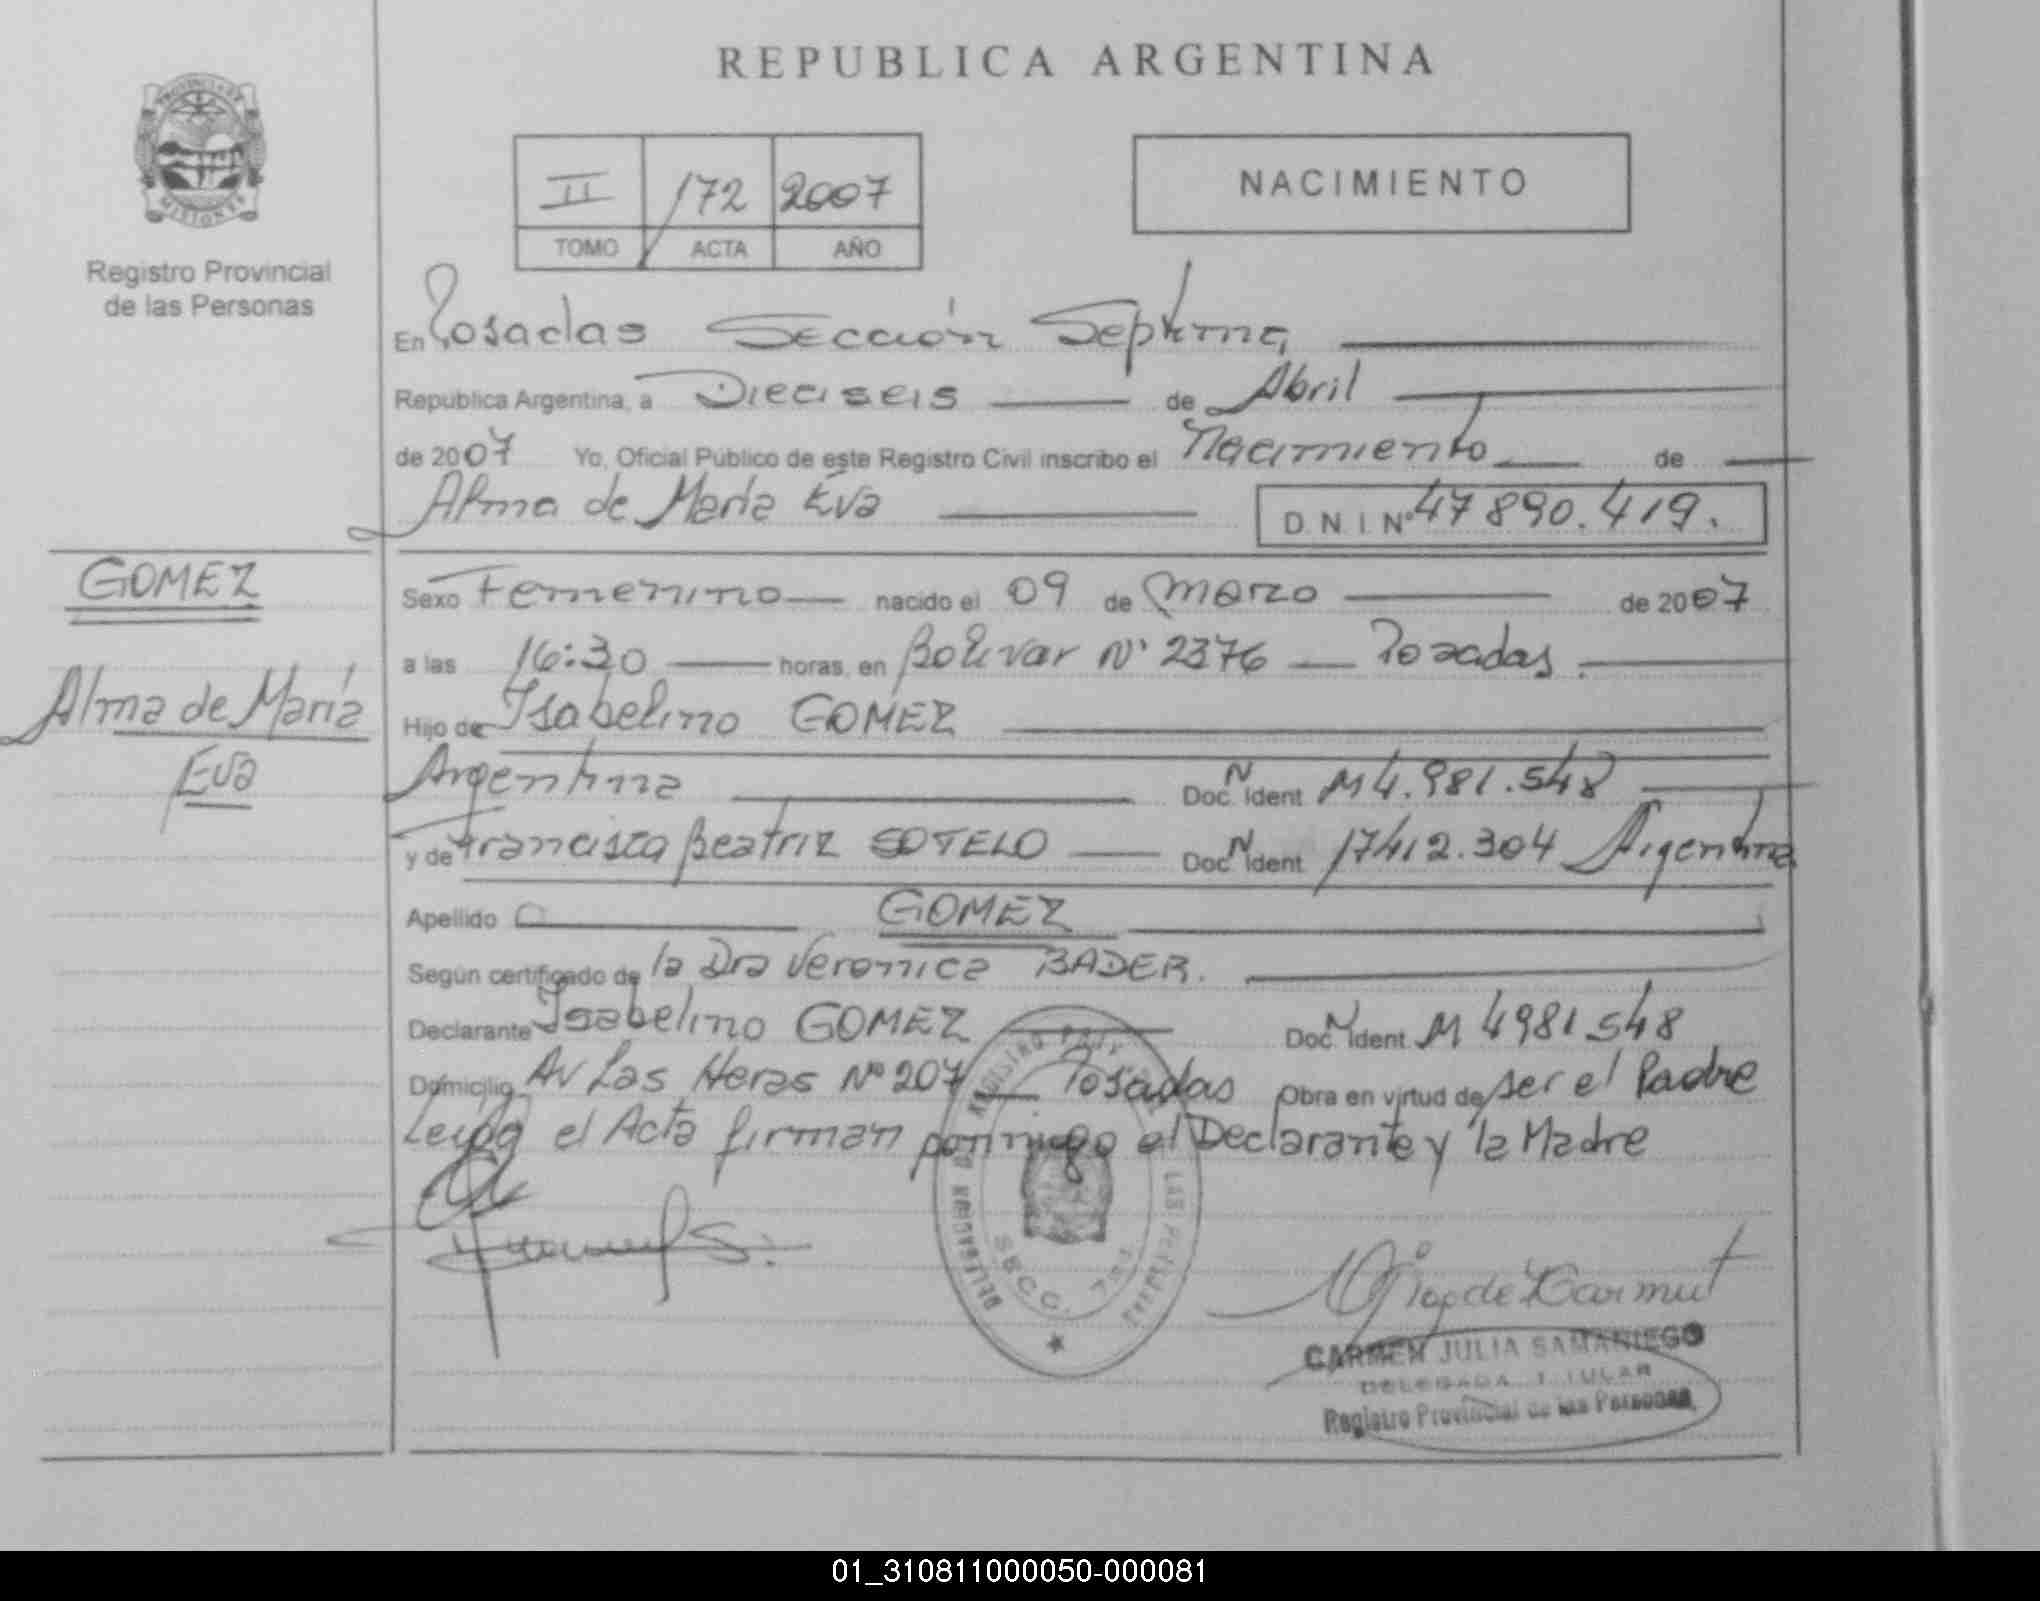 REPUBLICA ARGENTINA
PROVINCIA DE
MISIONES
Registro Provincial
de las Personas
II 172 2007
TOMO ACTA AÑO
NACIMIENTO
En Posadas Sección Septima
Republica Argentina, a Dieciseis de Abril
de 2007 Yo, Oficial Público de este Registro Civil inscribo el Nacimiento de
Alma de María Eva D.N.I. Nº 47890.419.
GOMEZ
Alma de María
Eva
Sexo Femenino nacido el 09 de marzo de 2007
a las 16:30 horas, en Bolivar Nº 2376 Posadas.
Hijo de Isabelino GOMEZ
Argentina Doc. N Ident M 4.981.548
y de Francisca Beatriz SOTELO Doc. N Ident 17412.304 Argentina
Apellido GOMEZ
Según certificado de la Dra Veronica BADER.
Declarante Isabelino GOMEZ Doc. N Ident. M 4981548
Domicilio Av Las Heras Nº 207 Posadas Obra en virtud de ser el Padre
Leida el Acta firman conmigo el Declarante y la Madre
DELEGACION REGISTRO PROV. LAS PERSONAS
SECC. 7
CARMEN JULIA SAMANIEGO
DELEGADA TITULAR
Registro Provincial de las Personas
01_310811000050-000081